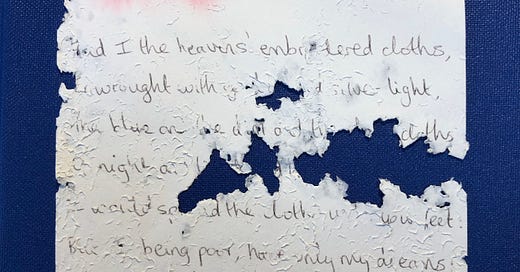 Had I the heavens' embroidered cloths,
Enwrought with and silver light,
The blue and the dim and the cloths
Of night and light
I would spread the cloths under your feet:
But I, being poor, have only my dreams;